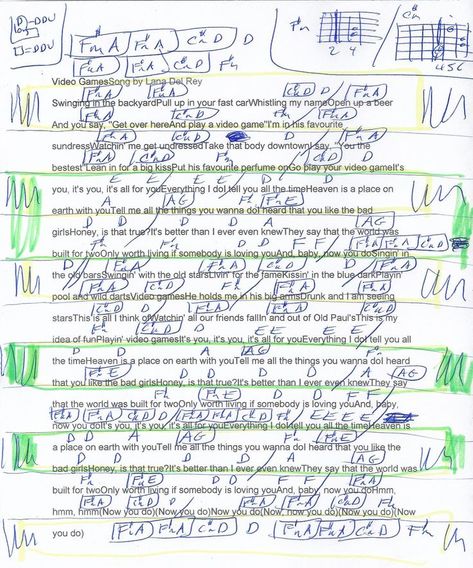 □-DDU
□=DDU
F#m A F#m A C#m D D
F#m A F#m A C#m D F#m
F#m
C#m
2 4
4 5 6
Video GamesSong by Lana Del Rey
F#m A F#m A C#m D D
Swinging in the backyardPull up in your fast carWhistling my nameOpen up a beer
F#m A F#m A C#m D F#m
And you say, "Get over hereAnd play a video game"I'm in his favourite
F#m A C#m D D F#m A
sundressWatchin' me get undressedTake that body downtownI say, "You the
F#m A C#m D D
bestest"Lean in for a big kissPut his favourite perfume onGo play your video gameIt's
E E E D D
you, it's you, it's all for youEverything I doI tell you all the timeHeaven is a place on
A AG F#m F#m E
earth with youTell me all the things you wanna doI heard that you like the bad
D D D A AG
girlsHoney, is that true?It's better than I ever even knewThey say that the world was
F#m F#m E D D F F F#m A F#m A C#m D
built for twoOnly worth living if somebody is loving youAnd, baby, now you doSingin' in
D F#m A F#m A C#m D F#m
the old barsSwingin' with the old starsLivin' for the fameKissin' in the blue darkPlayin'
F#m A F#m A C#m D D
pool and wild dartsVideo gamesHe holds me in his big armsDrunk and I am seeing
F#m A F#m A C#m D F#m
starsThis is all I think ofWatchin' all our friends fallIn and out of Old Paul'sThis is my
D E E E D
idea of funPlayin' video gamesIt's you, it's you, it's all for youEverything I doI tell you all
D A AG F#m
the timeHeaven is a place on earth with youTell me all the things you wanna doI heard
F#m E D D D A AG
that you like the bad girlsHoney, is that true?It's better than I ever even knewThey say
F#m F#m E D D F F
that the world was built for twoOnly worth living if somebody is loving youAnd, baby,
F#m A F#m A C#m D D F#m A F#m A C#m D F#m E E E
now you doIt's you, it's you, it's all for youEverything I doI tell you all the timeHeaven is
D D A AG F#m F#m E
a place on earth with youTell me all the things you wanna doI heard that you like the
D D D A AG
bad girlsHoney, is that true?It's better than I ever even knewThey say that the world was
F#m F#m E D D F F
built for twoOnly worth living if somebody is loving youAnd, baby, now you doHmm,
F#m A F#m A C#m D D F#m A F#m A C#m D F#m
hmm, hmm(Now you do)(Now you do)Now you do(Now, now you do)(Now you do)(Now
you do)
F#m A F#m A C#m D D F#m A F#m A C#m D F#m